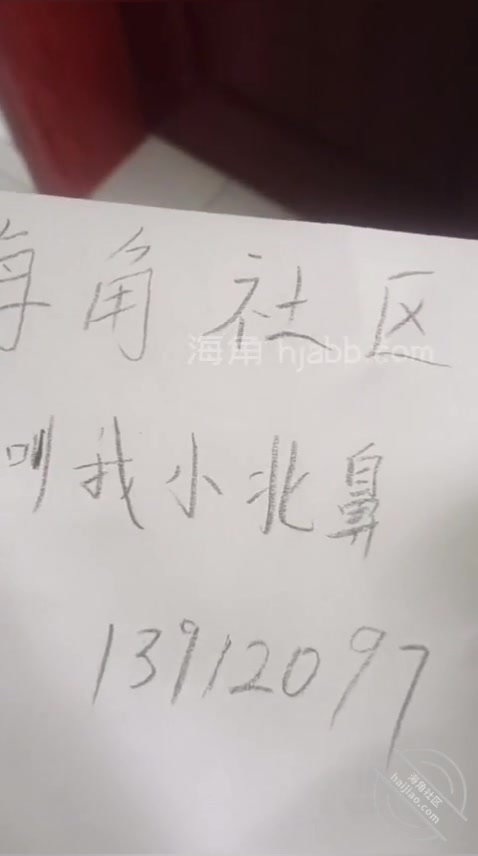 海角社区
海角 hjabb.com
叫我小北鼻
13912097
海角社区
haijiao.com